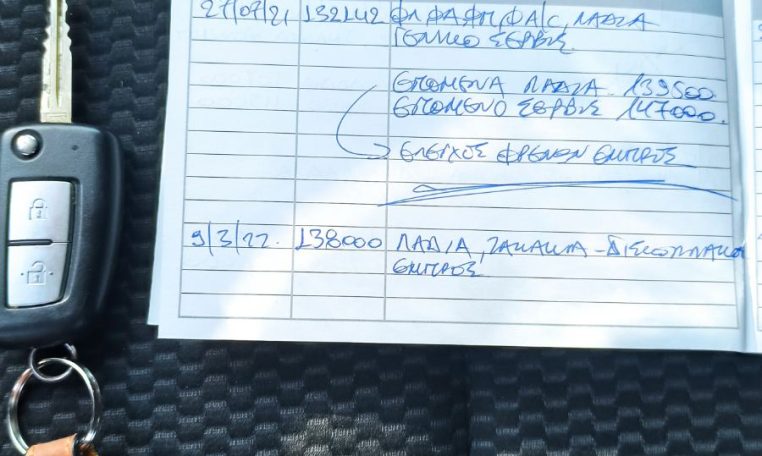 27/07/21 132142 ΦΛ, ΦΑ, ΦΠ, ΦΑ/C, ΛΑΔΙΑ
ΓΕΝΙΚΟ ΣΕΡΒΙΣ.
ΕΠΟΜΕΝΑ ΛΑΔΙΑ. 139500.
ΕΠΟΜΕΝΟ ΣΕΡΒΙΣ 147000.
ΕΛΕΓΧΟΣ ΦΡΕΝΩΝ ΕΜΠΡΟΣ
9/3/22. 138000 ΛΑΔΙΑ, ΤΑΚΑΚΙΑ - ΔΙΣΚΟΠΛΑΚΕΣ
ΕΜΠΡΟΣ